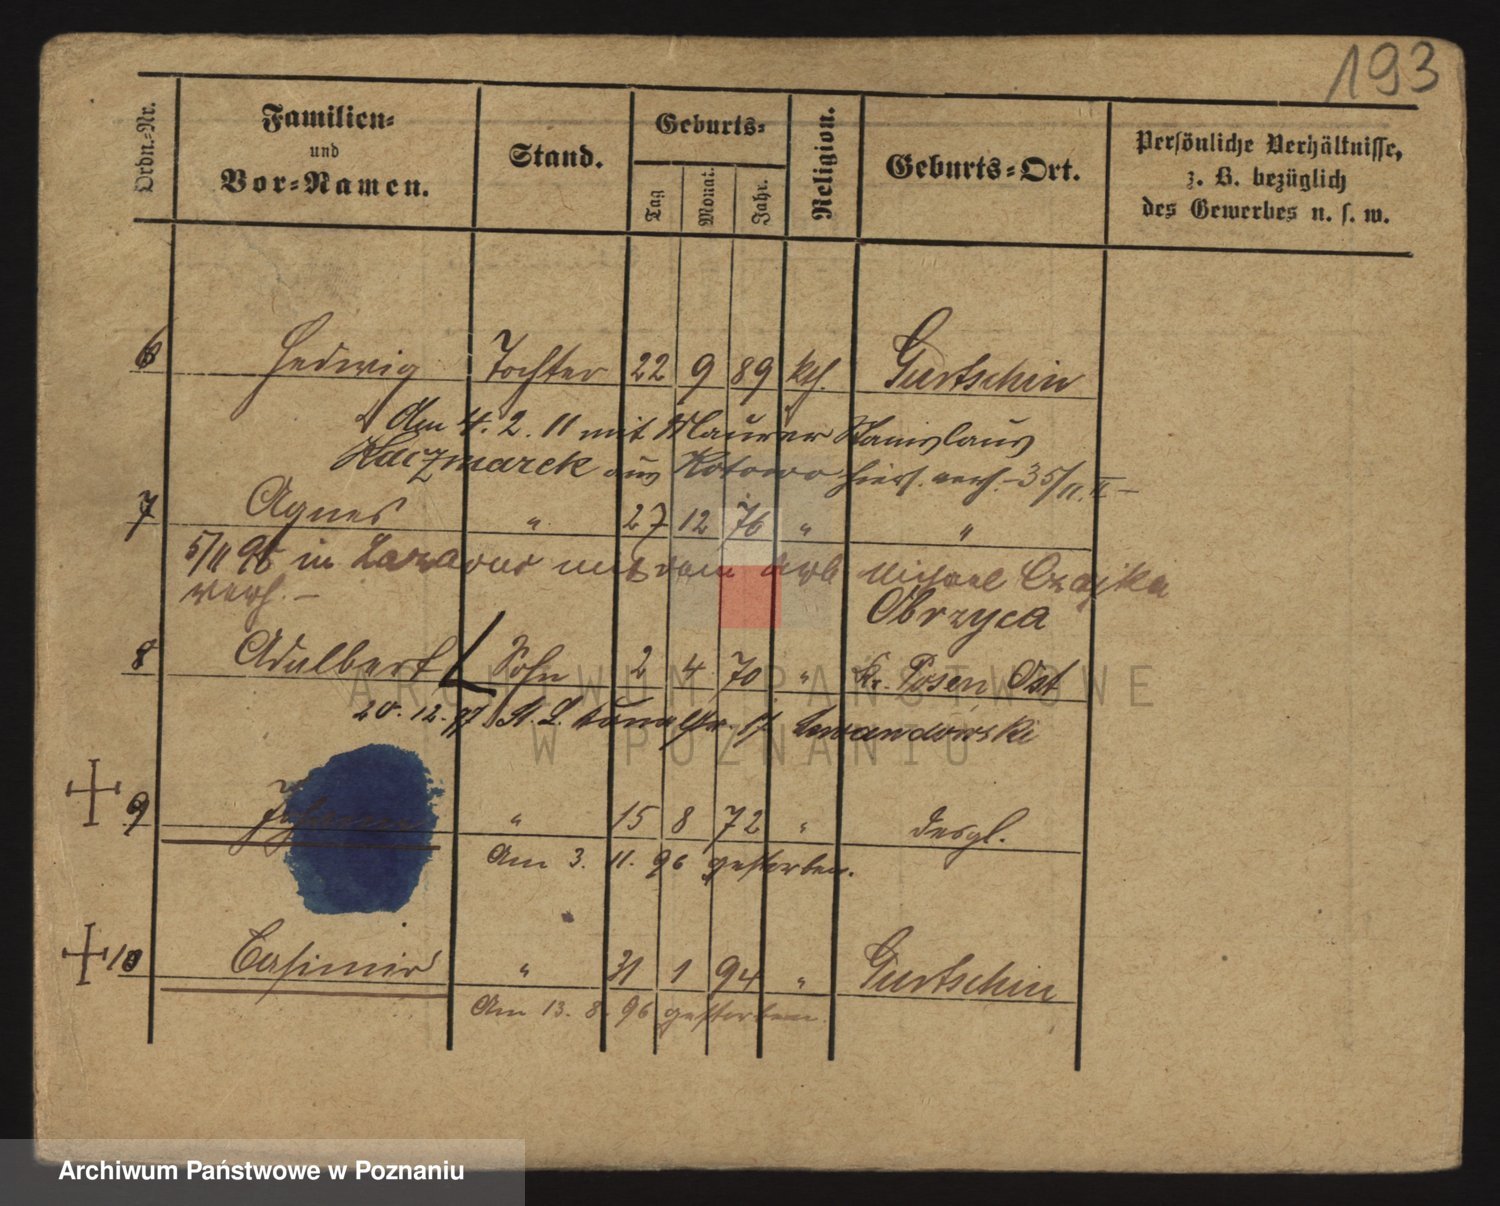 193
Ordn.-Nr.
Familien-
und
Vor-Namen.
Stand.
Geburts-
Tag
Monat.
Jahr.
Religion.
Geburts-Ort.
Persönliche Verhältnisse,
z. B. bezüglich
des Gewerbes u. s. w.
6 Hedwig Tochter 22 9 89 kth. Gurtschin
Am 4. 2. 11 mit Maurer Stanislaus
Kaczmarek aus Kotowo hier verh. 35/11. II
7 Agnes " 27 12 76 " "
5/11 98 in Lazarus mit dem Arb Michael Czajka
verh. —
Obrzyca
8 Adalbert Sohn 2 4 70 " Kr. Posen Ost
20. 12. 97 St. L. Lewandowski
9 Johann " 15 8 72 " desgl.
Am 3. 11. 96 gestorben.
10 Casimir " 31 1 94 " Gurtschin
Am 13. 8. 96 gestorben.
ARCHIWUM PAŃSTWOWE
W POZNANIU
Archiwum Państwowe w Poznaniu